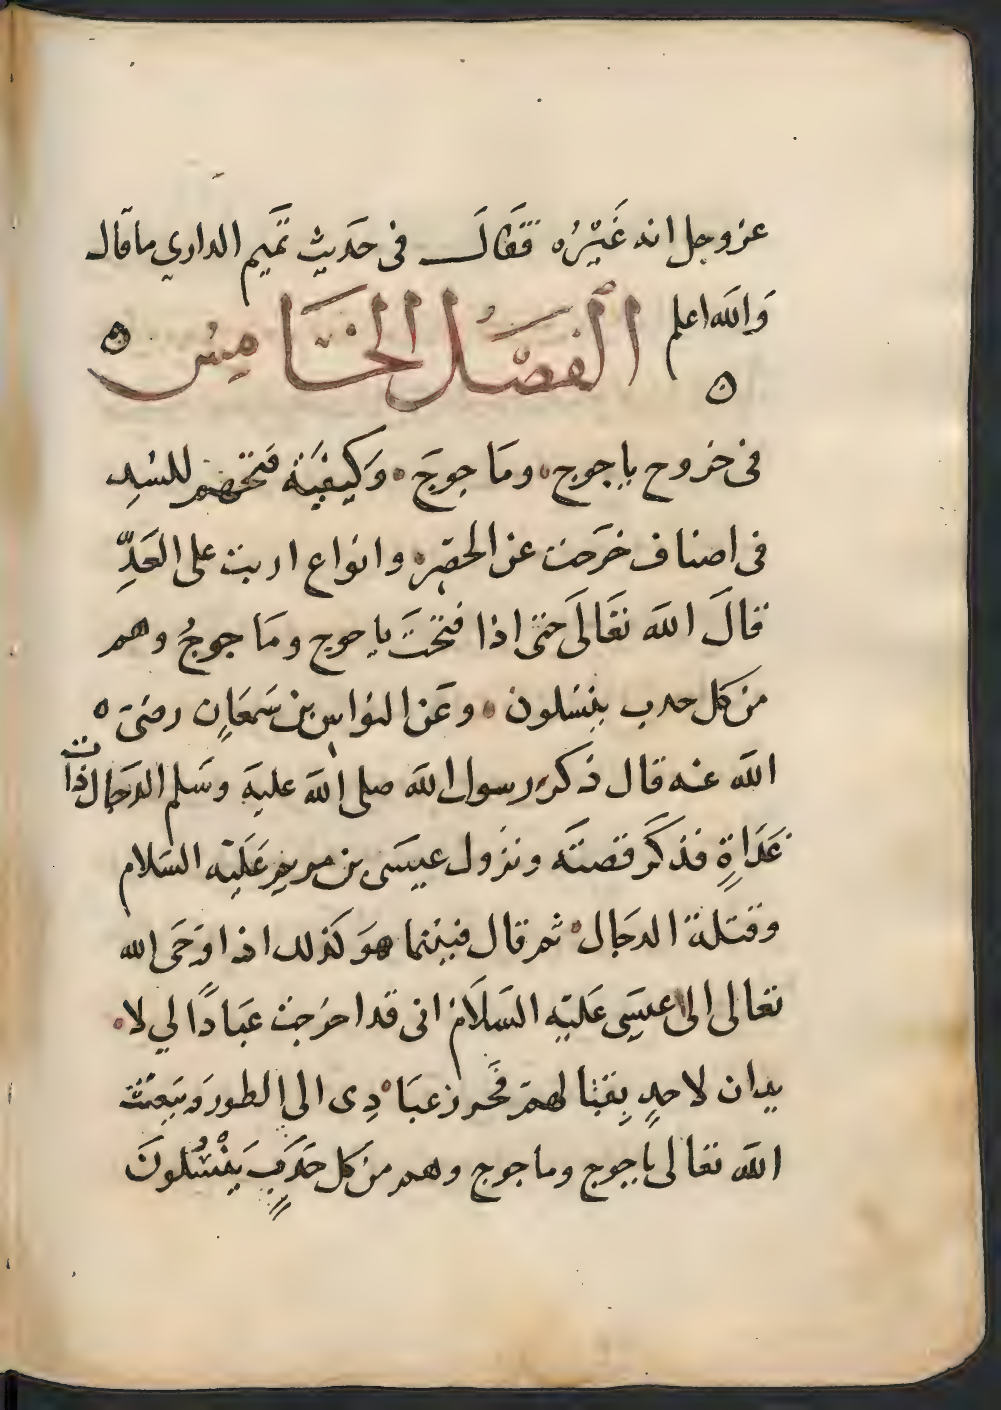 عز وجل انه غَيْرُه فقَالَ في حَديث تَميم الداري ما قال
وَالله اعلم الفصَل الخَامِسُ
في خروج ياجوج وَمَا جوجَ وَكيفيَة فتحهم للسَد
في اصناف خرَجت عن الحصر وانواع اربت على العَدِّ
قالَ الله تعَالىَ حتى اذا فتحَت ياجوج ومَا جوجُ وهم
من كل حدب ينسلون وعَن النواس بن سَمعَان رضى
الله عنه قال ذكر رسول الله صلى الله عليه وسَلم الدجال ذات
غدَاةٍ فذكَر قصتَه ونزول عيسَى بن مريم عَليه السَلام
وقتله الدجال ثم قال فبينما هوَ كذلك اذ اوحَى الله
تعالى الى عيسَى عَليه السَلام انى قد اخرجت عبَادًا لي لا
يدان لاحدٍ بقتالهم فحَرز عبَادِى الى الطور وَيبعَث
الله تعالى ياجوج وما جوج وهم من كل حَدَبٍ يَنْسُلونَ